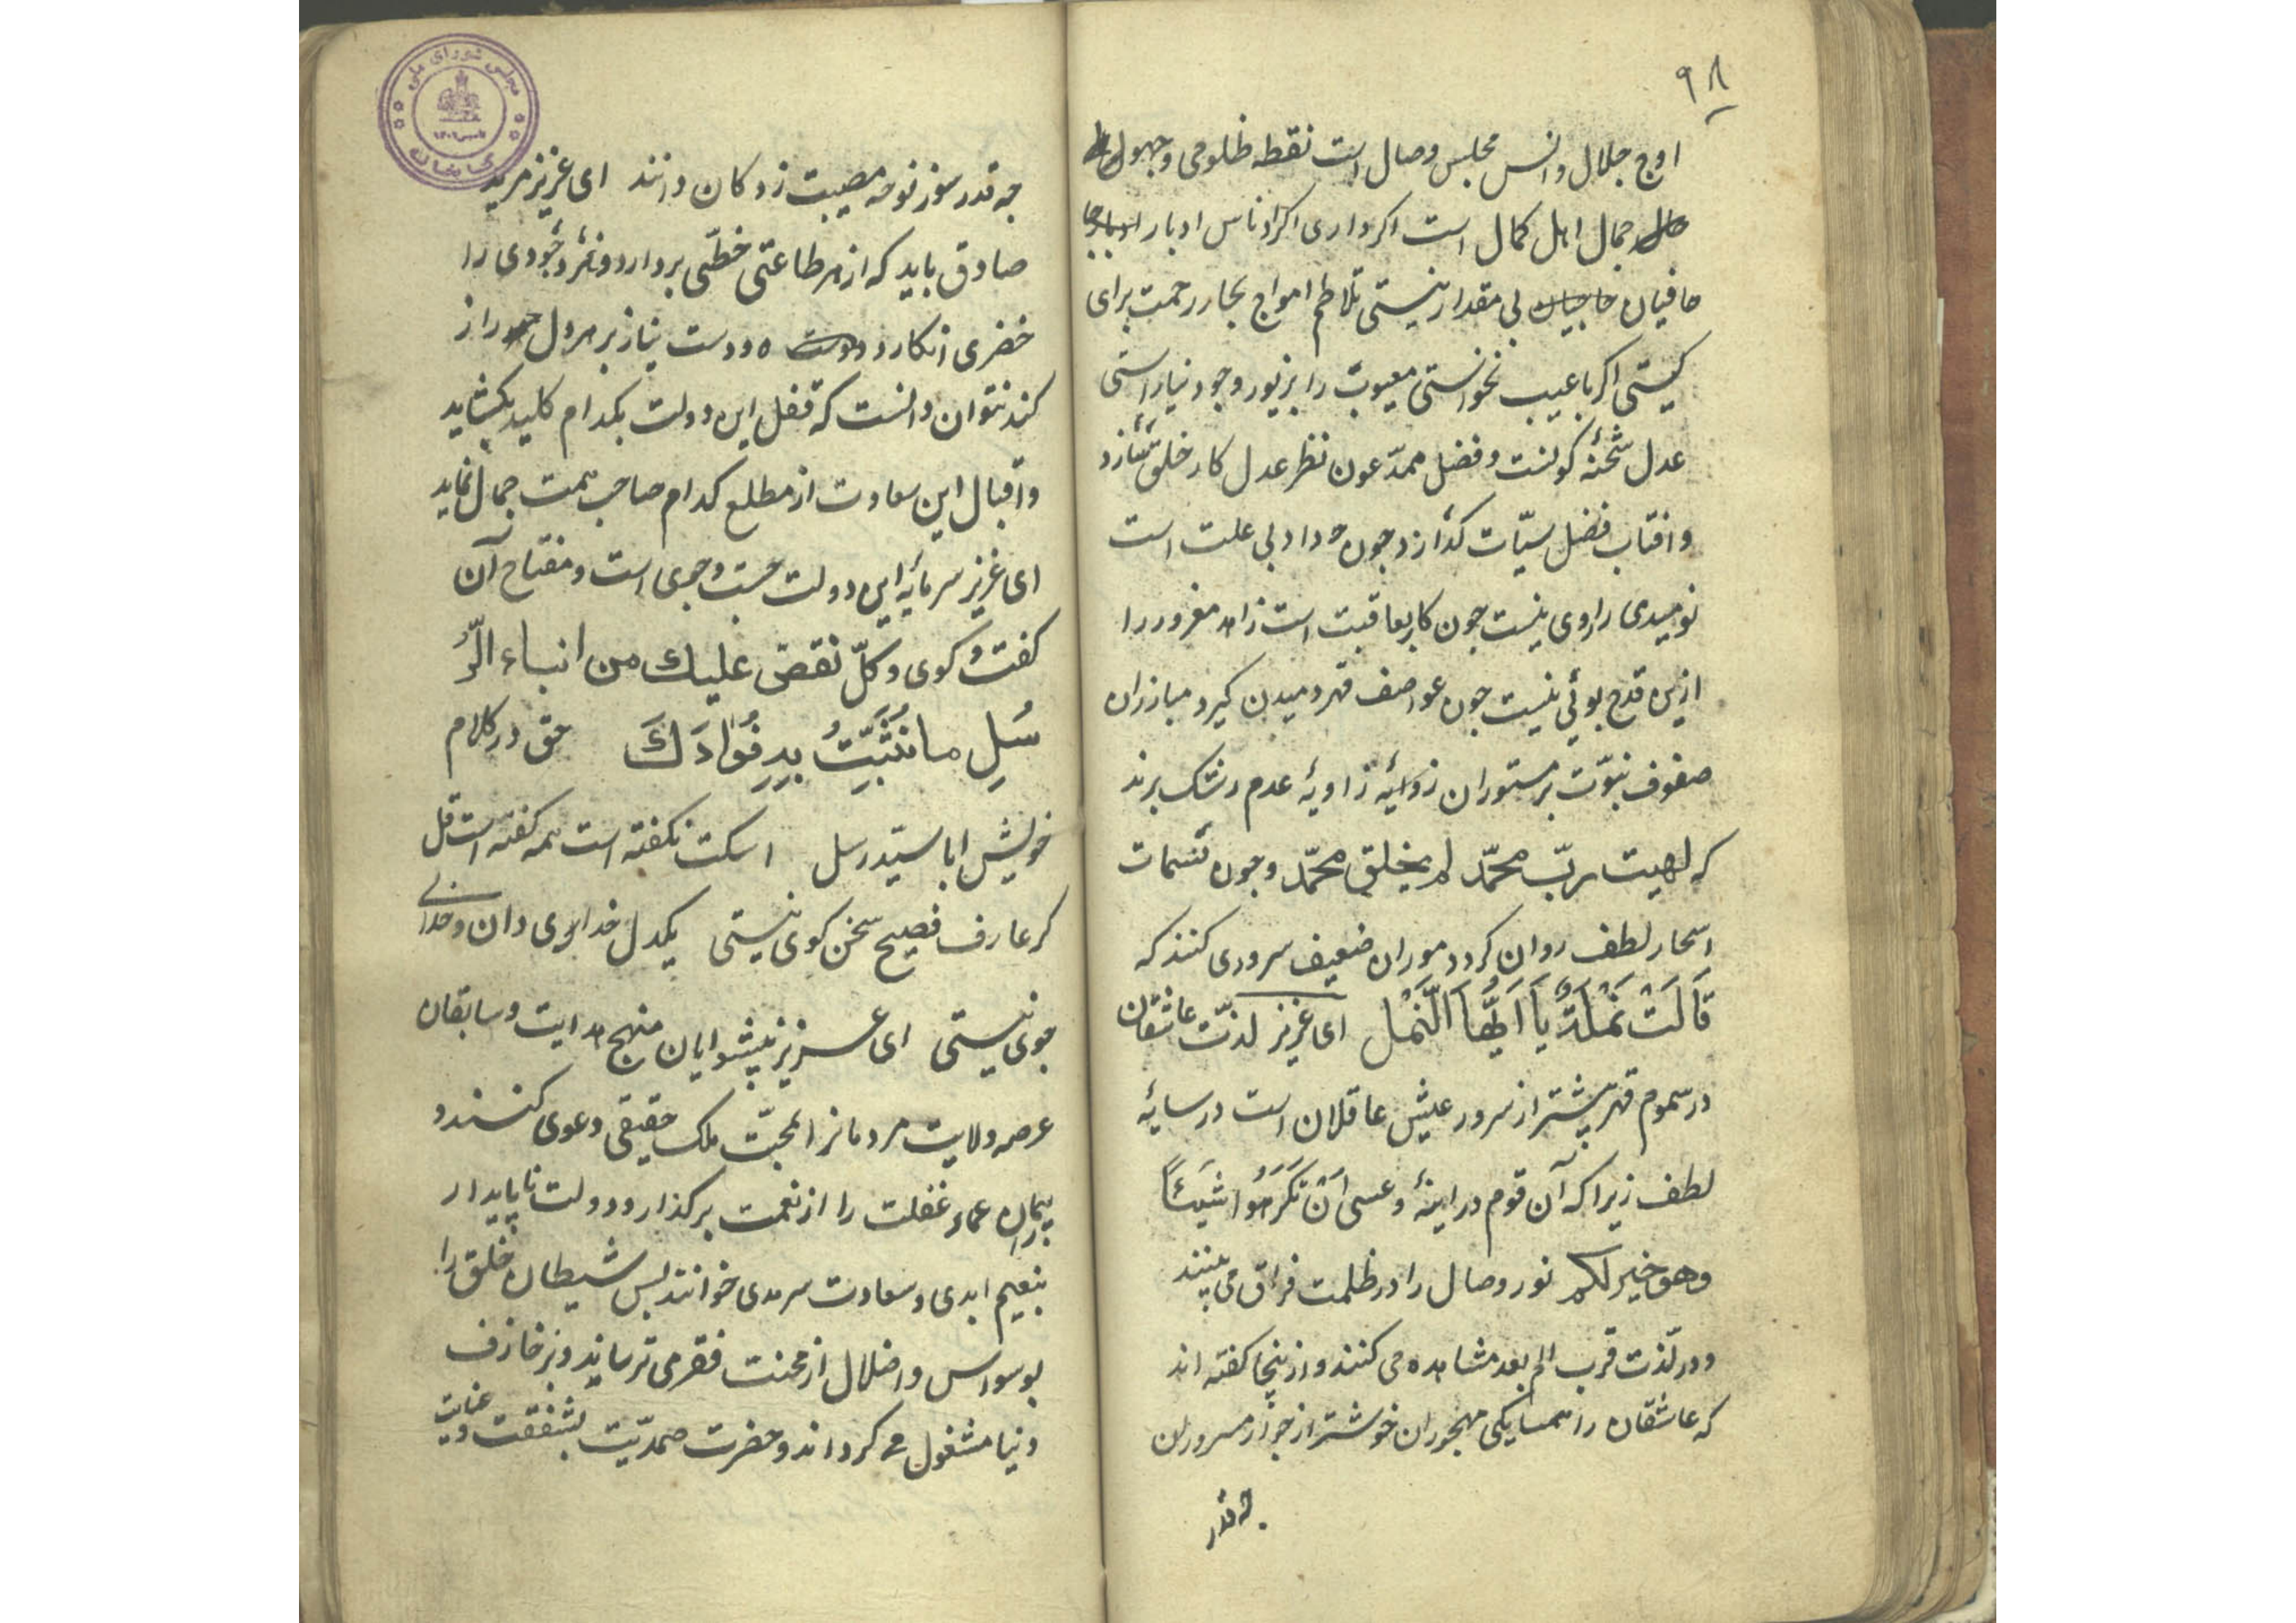 ۹۸
اوج جلال وانس مجلس وصال است نقطه ظلومی وجهولی
حال جمال اهل کمال است اکر داری اکراد ناس ادبار
حافیان بی مقدار نیستی تلاطم امواج بحار رحمت برای
کیستی اکر با عیب نخوانستی معیوب را بزیور وجود نیاراستی
عدل شحنۀ کونست وفضل ممدّ عون نظر عدل کار خلق سازد
وافتاب فضل سیّات کدازد جون داد بی علت است
نومیدی را روی نیست جون کار بعاقبت است زاهد مغرور را
ازین قدح بوئی نیست جون عواصف قهر ومیدن کیرد مبارزان
صفوف نبوّت بر مستوران زاویۀ عدم رشک برند
که لهیت ربّ محمّد لم یخلق محمّد وجون نسمات
اسحار لطف روان کردد موران ضعیف سروری کنند که
قَالَتْ نَمْلَةٌ یَا اَیُّهَا النَّمْل ای عزیز لذّت عاشقان
در سموم قهر بیشتر از سرور عیش عاقلان است در سایۀ
لطف زیرا که آن قوم در اینۀ وعسی اَنْ تَکْرَهُوا شَیْئاً
وهو خیر لکم نور وصال را در ظلمت فراق می بینند
ودر لذّت قرب الم بعد مشاهده می کنند وازینجا کفته اند
که عاشقان را همسایکی مهجوران خوشتر از جوار مسروران
جه قدر
مجلس شورای ملی
کتابخانه
جه قدر سوز نوحه مصیبت زدکان دانند ای عزیز مرید
صادق باید که از هر طاعتی خطّی بردارد وهر وجودی را
خضری انکارد ودست نیاز بر هر دل دراز
کند نتوان دانست که قفل این دولت بکدام کلید بکشاید
واقبال این سعادت از مطلع کدام صاحب همت جمال نماید
ای عزیز سرمایۀ این دولت جست وجوی است ومفتاح آن
کفت وکوی وکلّ نقصّ علیك من انباء الرُّ
سُلِ ما نُثَبِّتُ بِهِ فُؤادَكَ حق در کلام
خویش ابا سیّد رسل اسکت نکفته است همه کفته است قل
کر عارف فصیح سخن کوی نیستی یکدل خدای دان وخدای
جوی نیستی ای عزیز پیشوایان منهج هدایت وسابقان
عرصه ولایت مردمانرا بمحبّت ملک حقیقی دعوی کنند و
بیماران عماء غفلت را از نعمت برکذار ودولت ناپایدار
بنعیم ابدی وسعادت سرمدی خوانند بس شیطان خلق را
بوسواس واضلال از محنت فقر می ترساند وبزخارف
دنیا مشغول می کرداند وحضرت صمدیّت بشفقت وعنایت